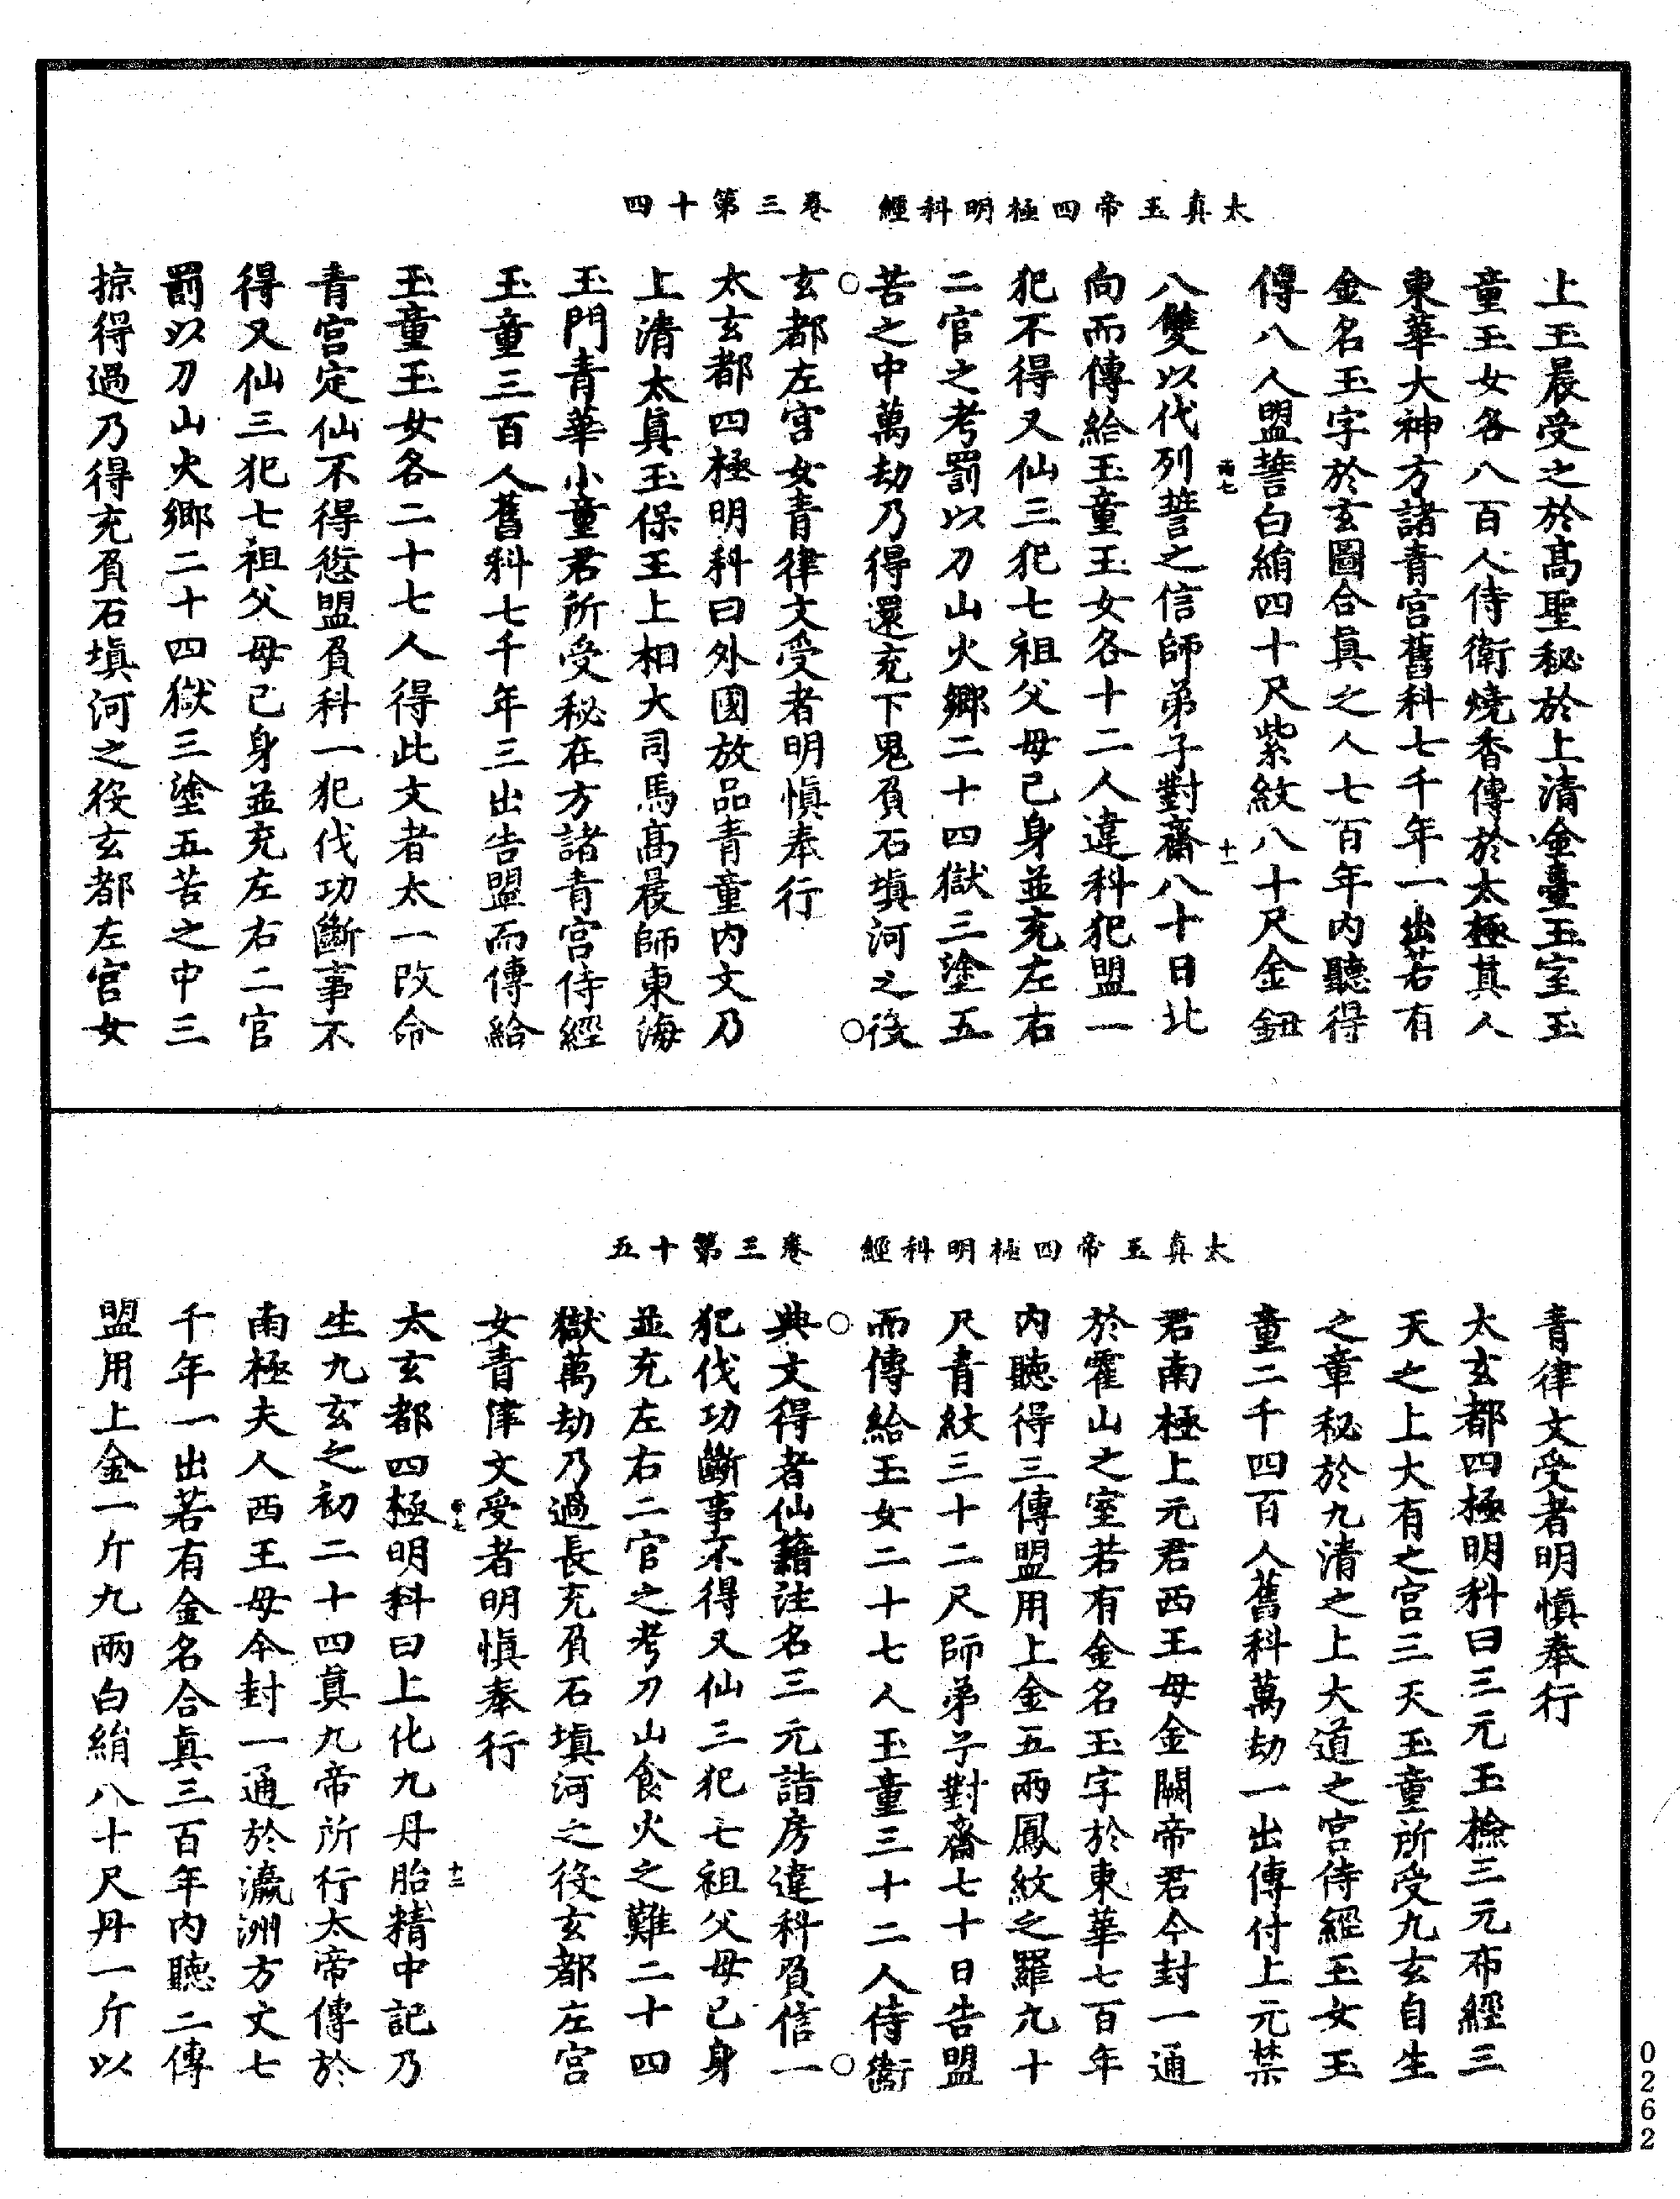 太真玉帝四極明科經　卷三第十四
上玉晨受之於高聖秘於上清金臺玉室玉
童玉女各八百人侍衛燒香傳於太極其人
東華大神方諸青宮舊科七千年一出若有
金名玉字於玄圖合真之人七百年內聽得
傳八人盟誓白絹四十尺紫紋八十尺金鈕
十一
八雙以代列誓之信師弟子對齋八十日北
向而傳給玉童玉女各十二人違科犯盟一
犯不得又仙三犯七祖父母己身並充左右
二官之考罰以刀山火鄉二十四獄三塗五
苦之中萬劫乃得還充下鬼負石填河之役
玄都左宮女青律文受者明慎奉行
太玄都四極明科曰外國放品青童內文乃
上清太真玉保王上相大司馬高晨師東海
玉門青華小童君所受秘在方諸青宮侍經
玉童三百人舊科七千年三出告盟而傳給
玉童玉女各二十七人得此文者太一改命
青宮定仙不得慭盟負科一犯伐功斷事不
得又仙三犯七祖父母己身並充左右二官
罰以刀山火鄉二十四獄三塗五苦之中三
掠得過乃得充負石填河之役玄都左官女
太真玉帝四極明科經　卷三第十五
青律文受者明慎奉行
太玄都四極明科曰三元玉檢三元布經三
天之上大有之宮三天玉童所受九玄自生
之章秘於九清之上大道之宮侍經玉女玉
童二千四百人舊科萬劫一出傳付上元禁
君南極上元君西王母金闕帝君今封一通
於霍山之室若有金名玉字於東華七百年
內聽得三傳盟用上金五兩鳳紋之羅九十
尺青紋三十二尺師弟子對齋七十日告盟
而傳給玉女二十七人玉童三十二人侍衛
典文得者仙籍注名三元詣房違科負信一
犯伐功斷事不得又仙三犯七祖父母己身
並充左右二官之考刀山食火之難二十四
獄萬劫乃過長充負石填河之役玄都左宮
女青律文受者明慎奉行
十二
太玄都四極明科曰上化九丹胎精中記乃
生九玄之初二十四真九帝所行太帝傳於
南極夫人西王母今封一通於瀛洲方丈七
千年一出若有金名合真三百年內聽二傳
盟用上金一斤九兩白絹八十尺丹一斤以
0262